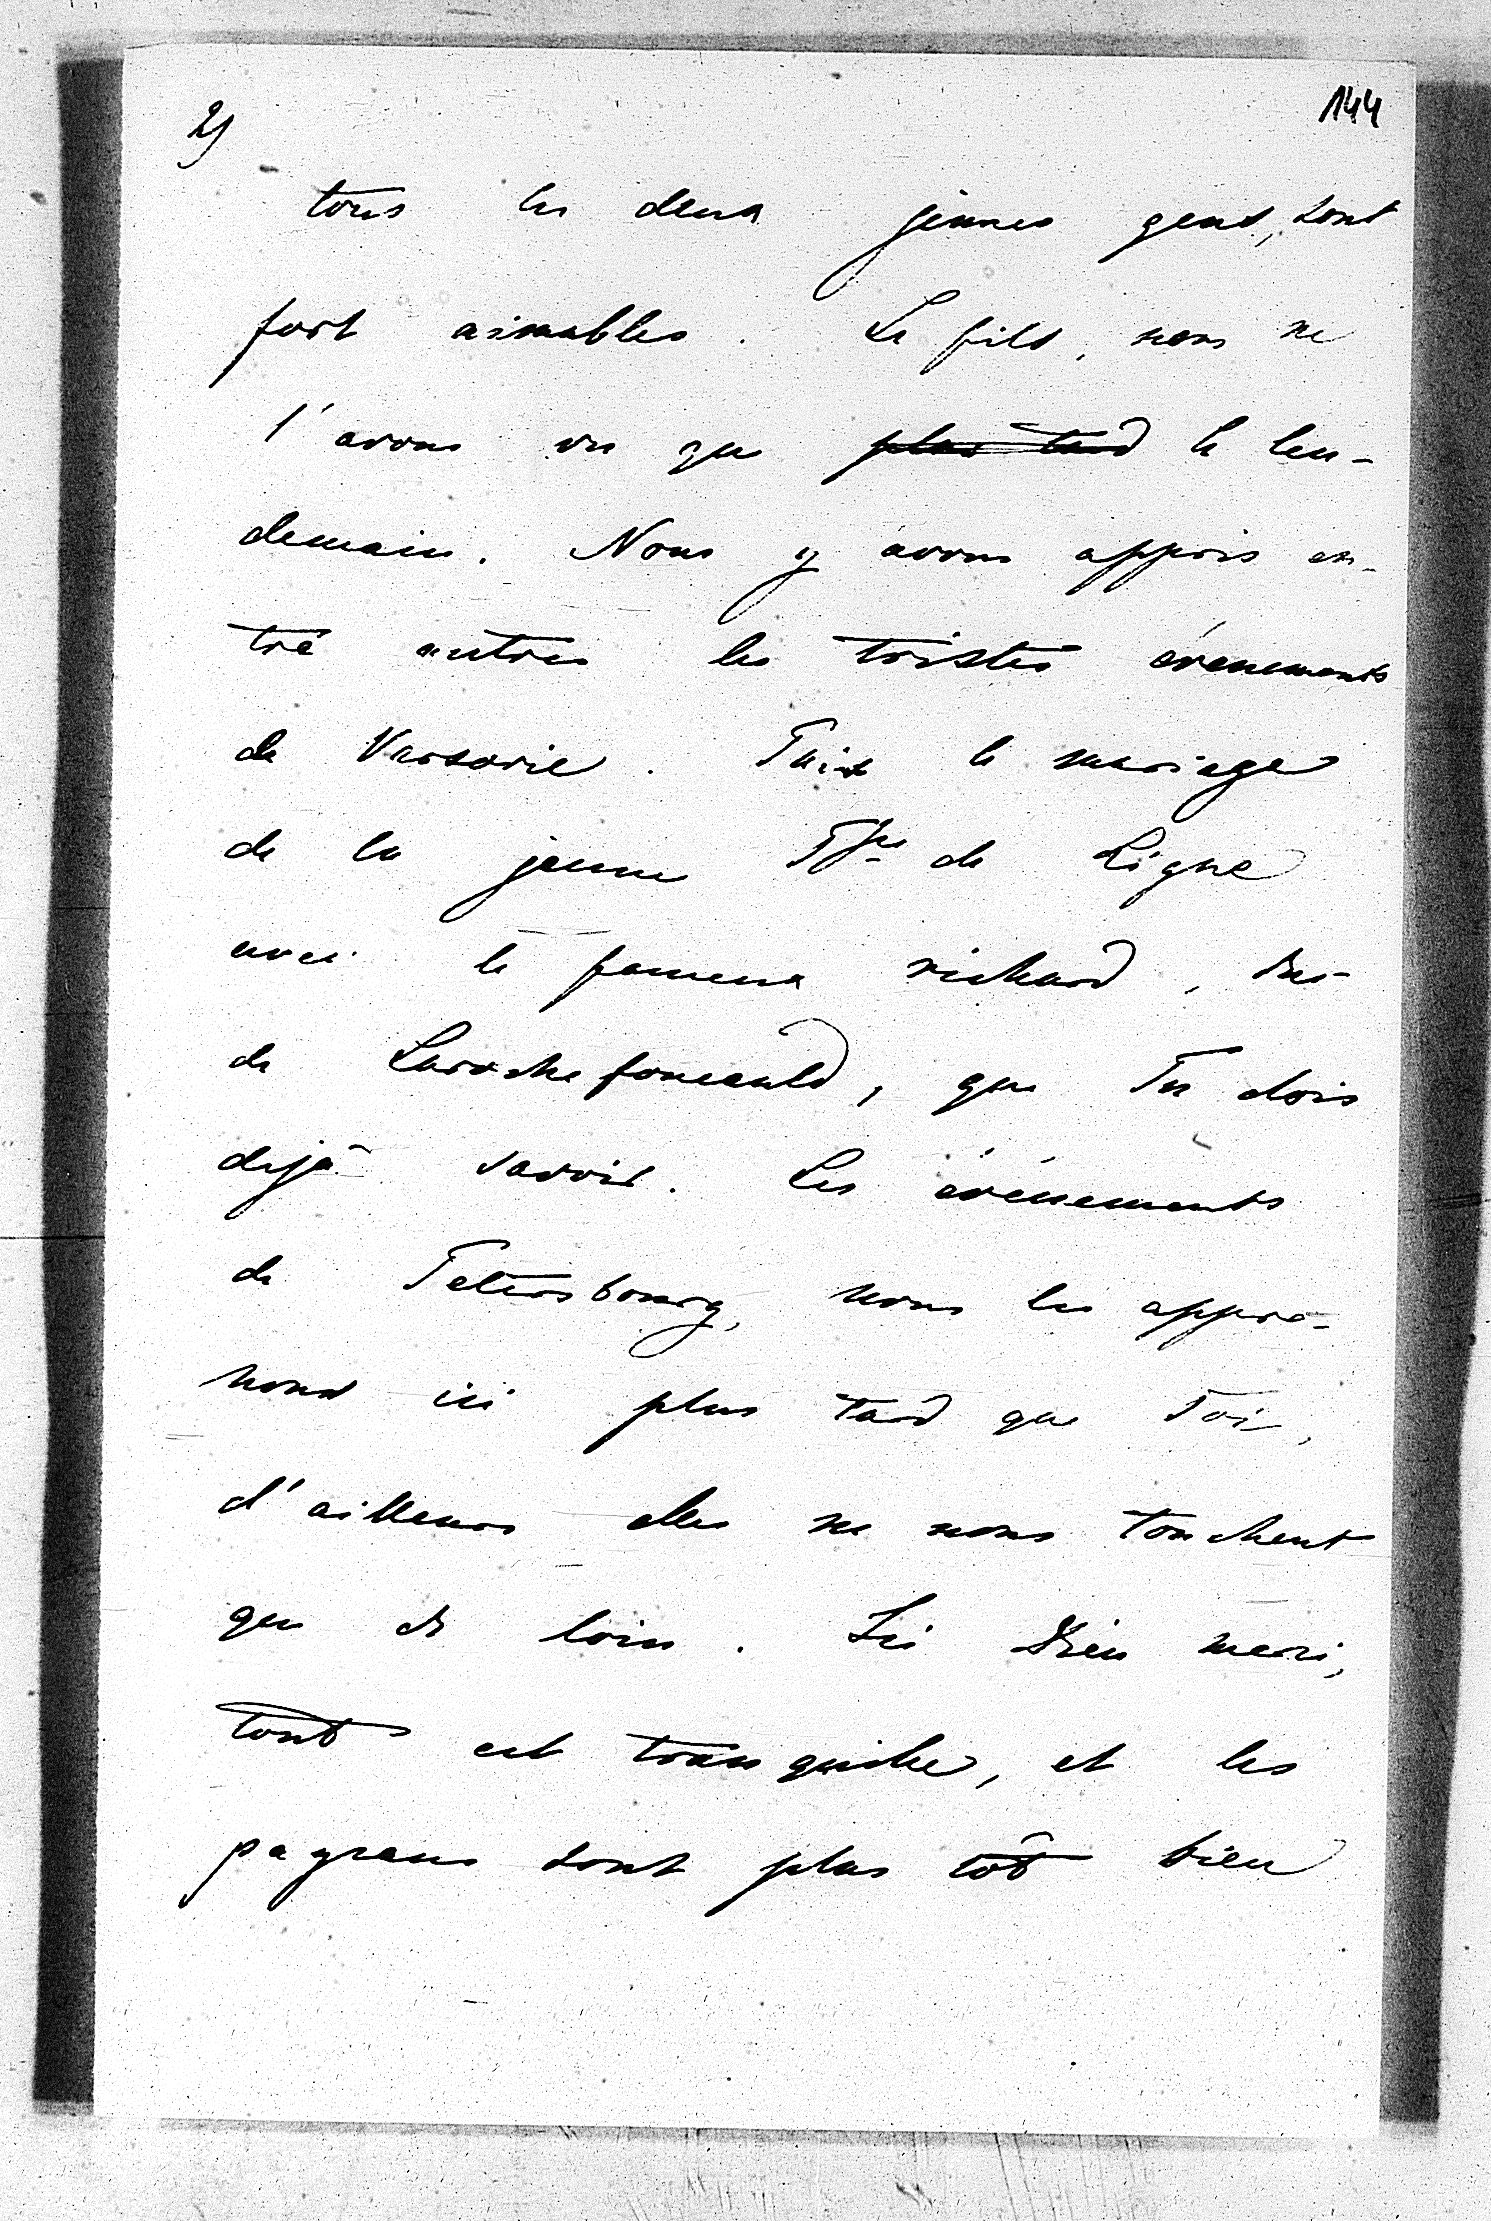 2) 144
tous les deux jeunes gens, sont
fort aimables. Le fils, nous ne
l'avons vu que plus tard le len-
demain. Nous y avons appris en-
tre autres les tristes évenements
de Varsovie. Puis le mariage
de la jeune Psse de Ligne
avec le fameux richard, duc
de Larochefoucauld, que Tu dois
dejà savoir. Les événements
de Petersbourg, nous les appre-
nons ici plus tard que Toi,
d'ailleurs elles ne nous touchent
que de loin. Ici Dieu merci,
tout est tranquille, et les
paysans sont plus tôt bien